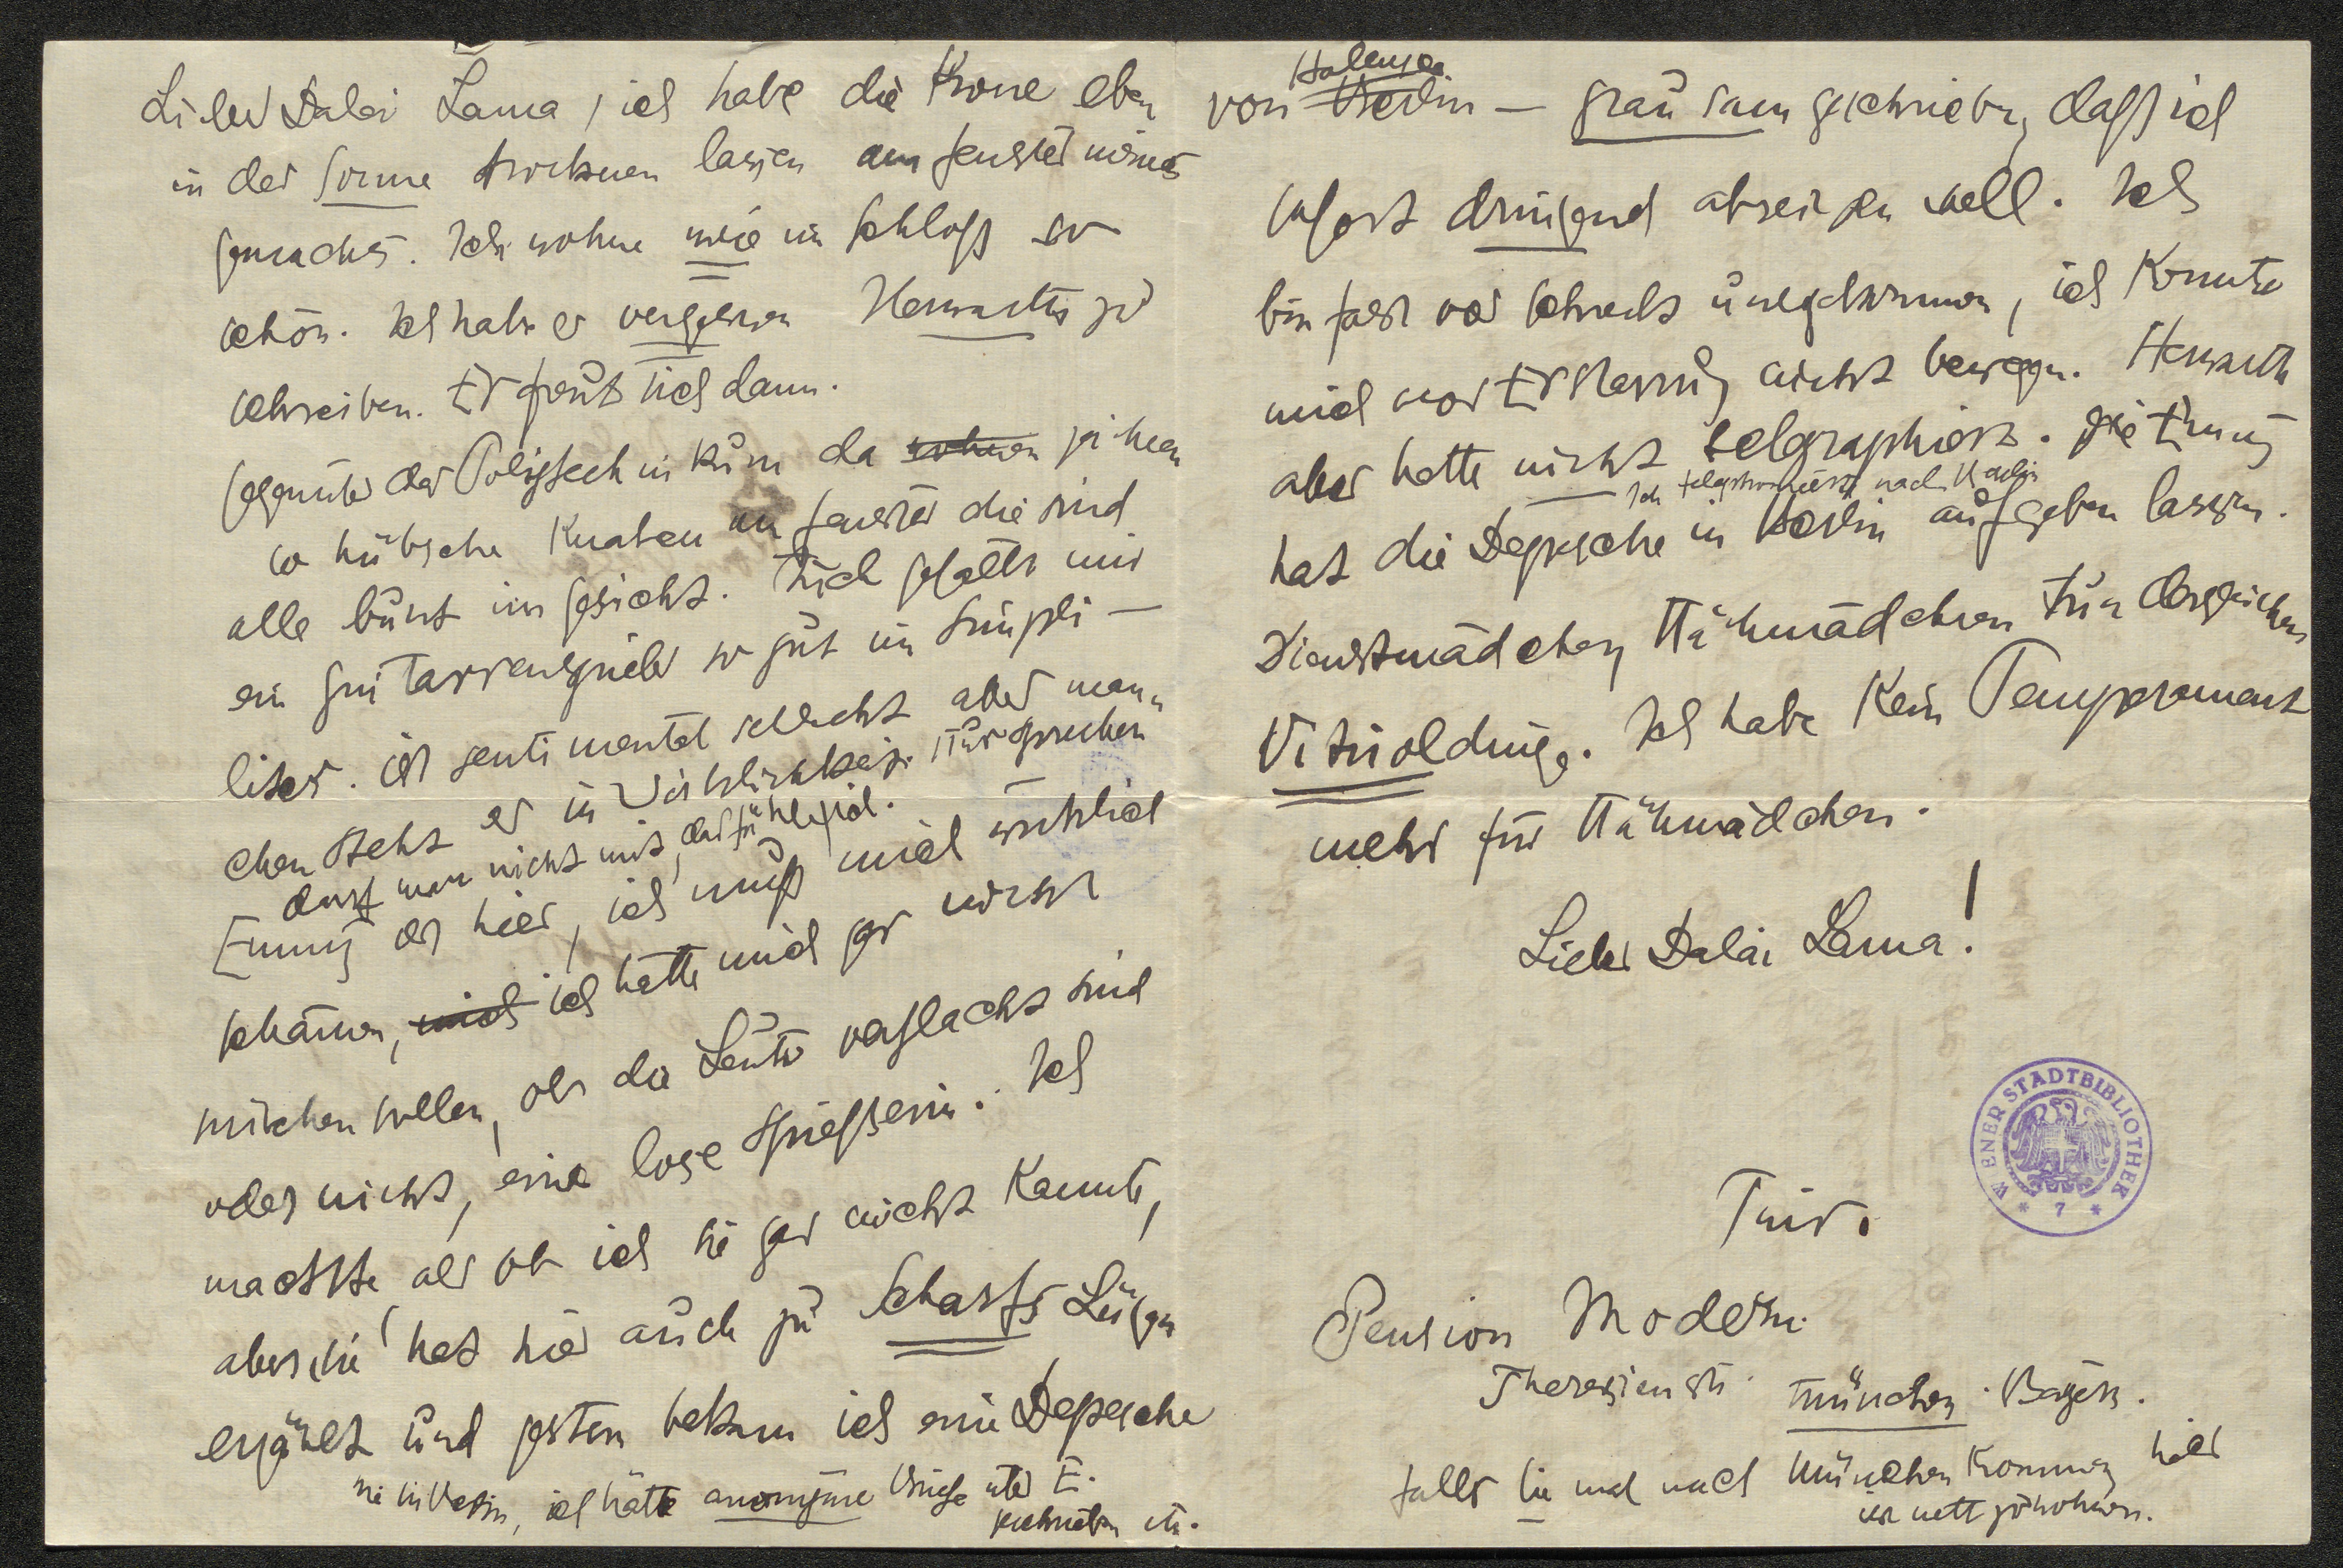 Lieber Dalai Lama, ich habe die Krone eben
in der Sonne trocknen lassen am Fenster meines
Gemaches. Ich wohne wie im Schloß so
schön. Ich habe es vergessen Herwarth zu
schreiben. Er freut sich dann.
Gegenüber das Politechnikum da wohnen zeichnen
so hübsche Knaben am Fenster die sind
alle bunt im Gesicht. Auch gefällt mir
ein Guitarrenspieler so gut im Simpli-
ist sentimental vielleicht aber mann
chen steht er in Wirklichkeit. Nur sprechen
darf man nicht mit, das fühle ich.
Emmy ist hier, ich muß mich wirklich
schämen, mich ich hätte mich gar nicht
mischen sollen, ob die Leute verflacht sind
oder nicht, eine lose Spießerin. Ich
machte als ob ich sie gar nicht kannte,
aber sie hat hier auch zu Scharfs Lügen
erzählt und gestern bekam ich eine Depesche
wie in Berlin, ich hätte anonyme Briefe über E.
geschrieben etc.
von Berlin Halensee — grausam geschrieben, daß ich
sofort dringend abreisen soll. Ich
bin fast vor Schreck umgekommen, ich konnte
mich vor Erstarrung nicht bewegen. Herwarth
aber hatte nicht telgraphiert. Die Emmy
Ich telegraphierte nach Berlin
hat die Depesche in Berlin aufgeben lassen.
Dienstmädchen, Nähmädchen tun dergleichen
Vitrioldinge. Ich habe kein Temperament
mehr für Nähmädchen.
Lieber Dalai Lama!
Tino.
Pension Modern
Theresienstr. München. Bayern.
Falls Sie mal nach München kommen, hier
ist nett zu wohnen.
WIENER STADTBIBLIOTHEK
* 7 *